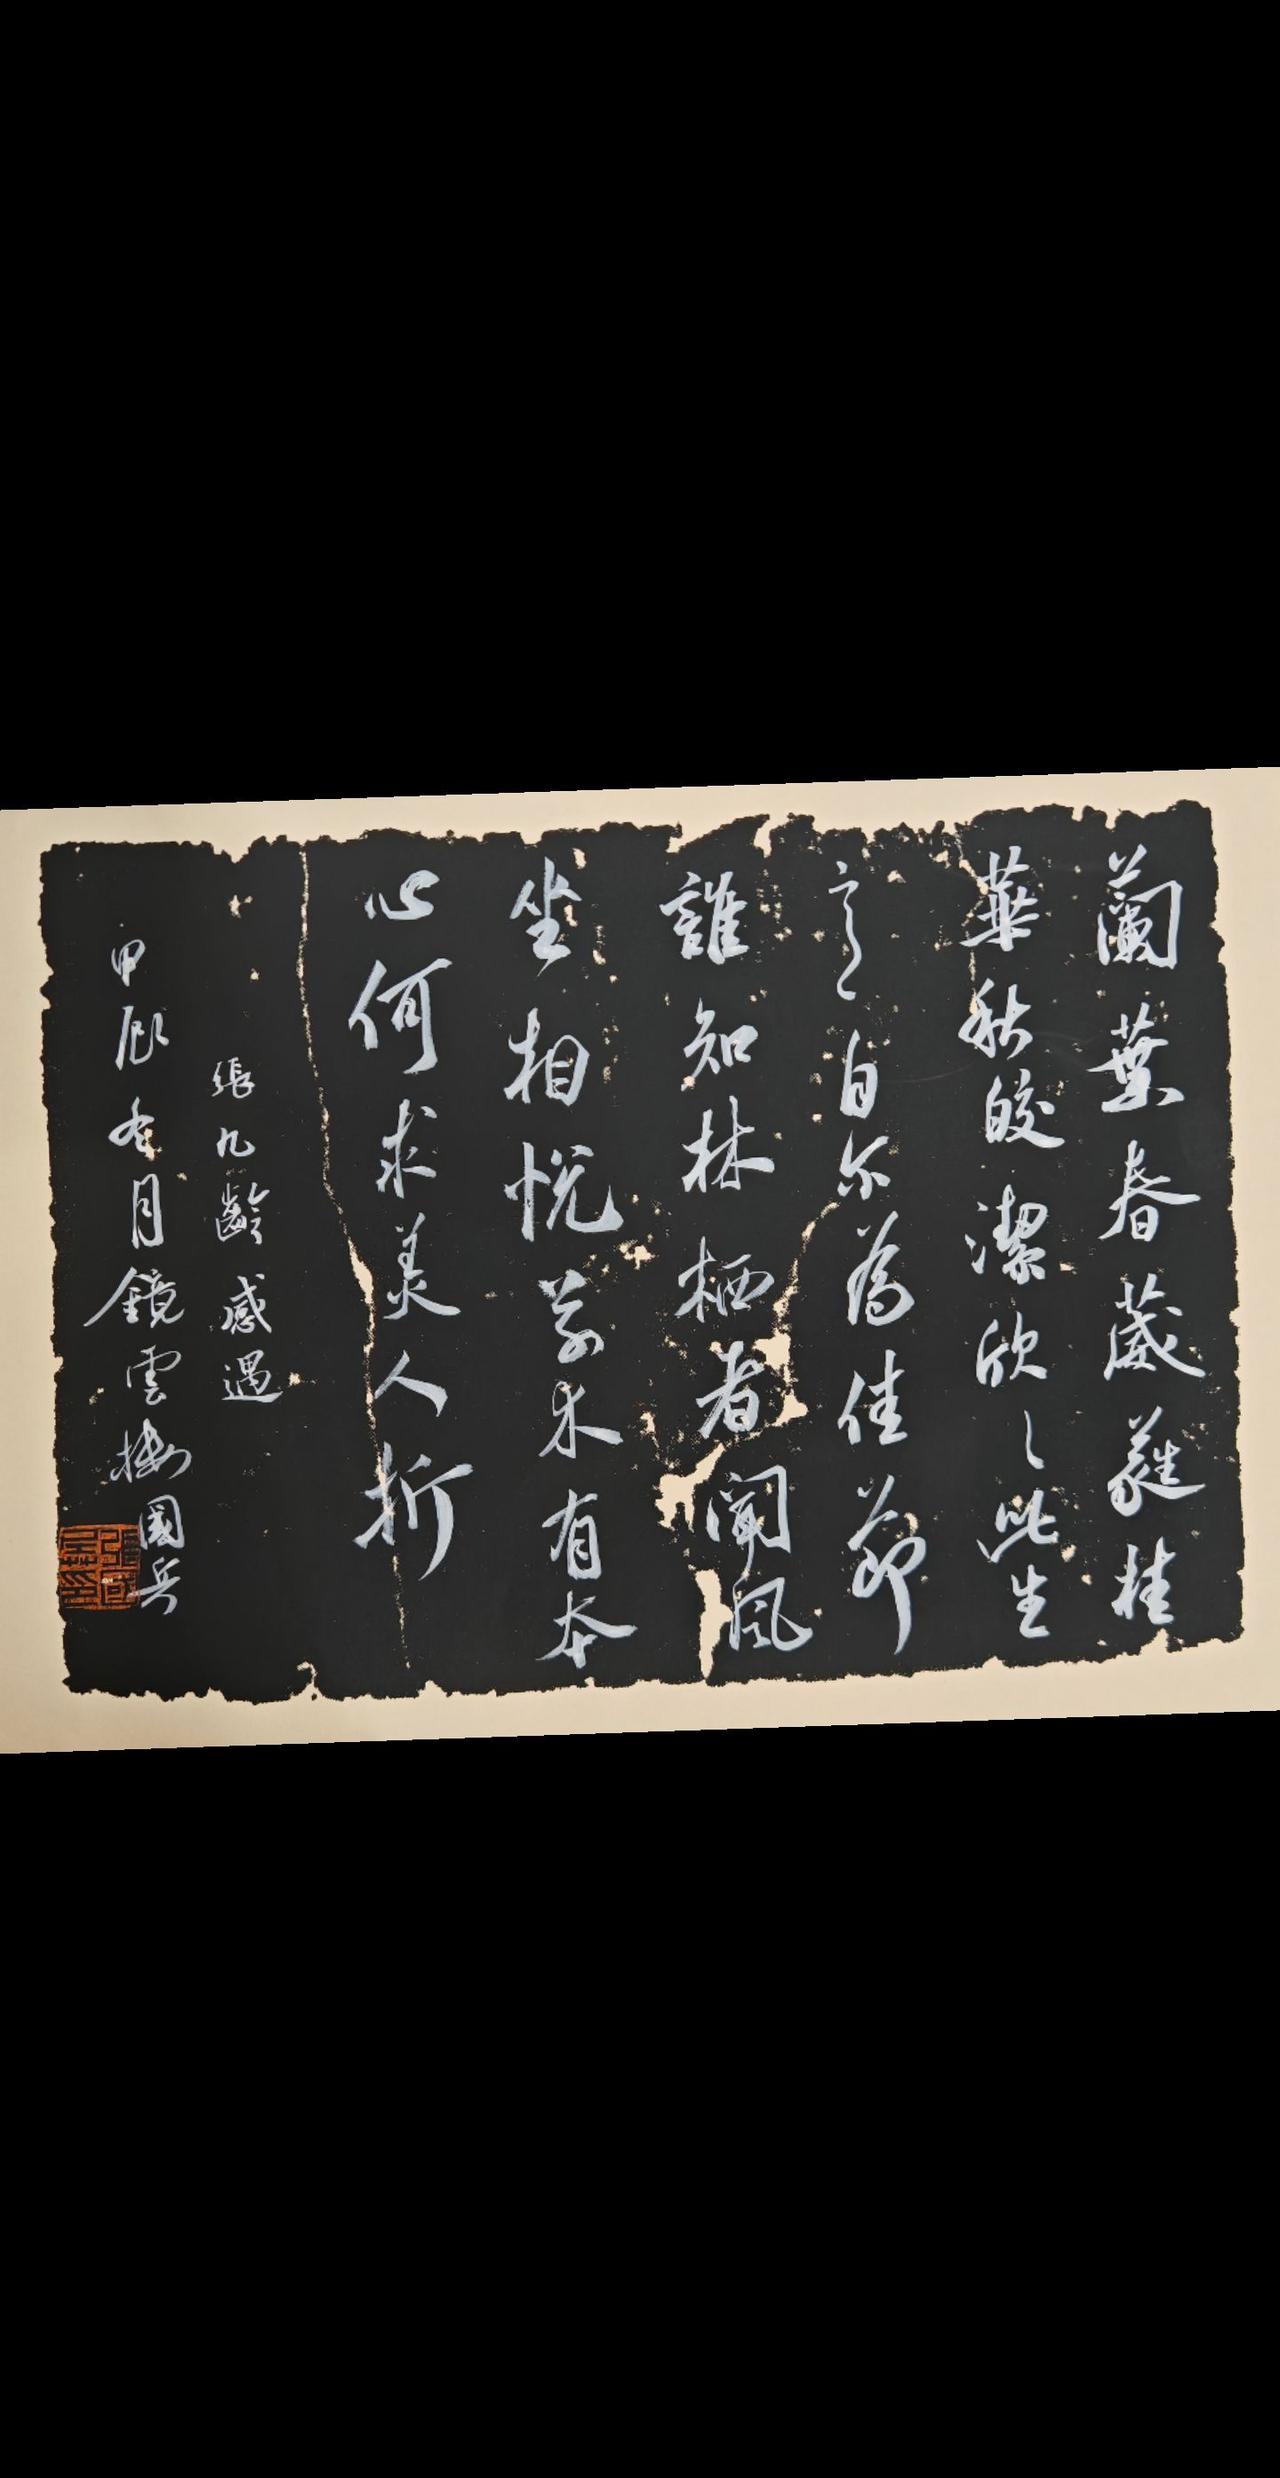 蘭葉春葳蕤桂
華秋皎潔欣〻此生
意自尔為佳節
誰知林栖者聞風
坐相悅草木有本
心何求美人折
張九齡感遇
甲辰冬月鏡雲樓國兵